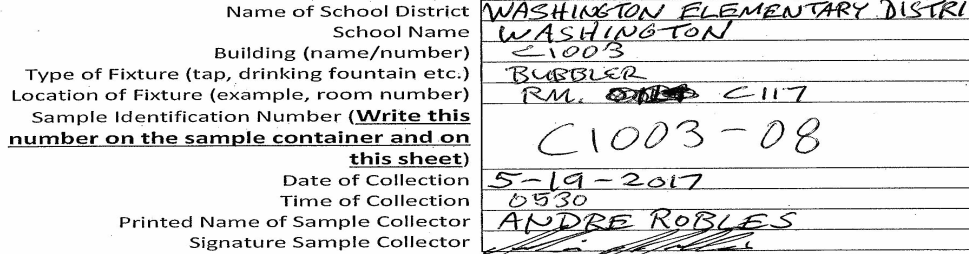 Name of School District WASHINGTON ELEMENTARY DISTRI
School Name WASHINGTON
Building (name/number) C1003
Type of Fixture (tap, drinking fountain etc.) BUBBLER
Location of Fixture (example, room number) RM. C117
Sample Identification Number (Write this
number on the sample container and on C1003-08
this sheet)
Date of Collection 5-19-2017
Time of Collection 0530
Printed Name of Sample Collector ANDRE ROBLES
Signature Sample Collector